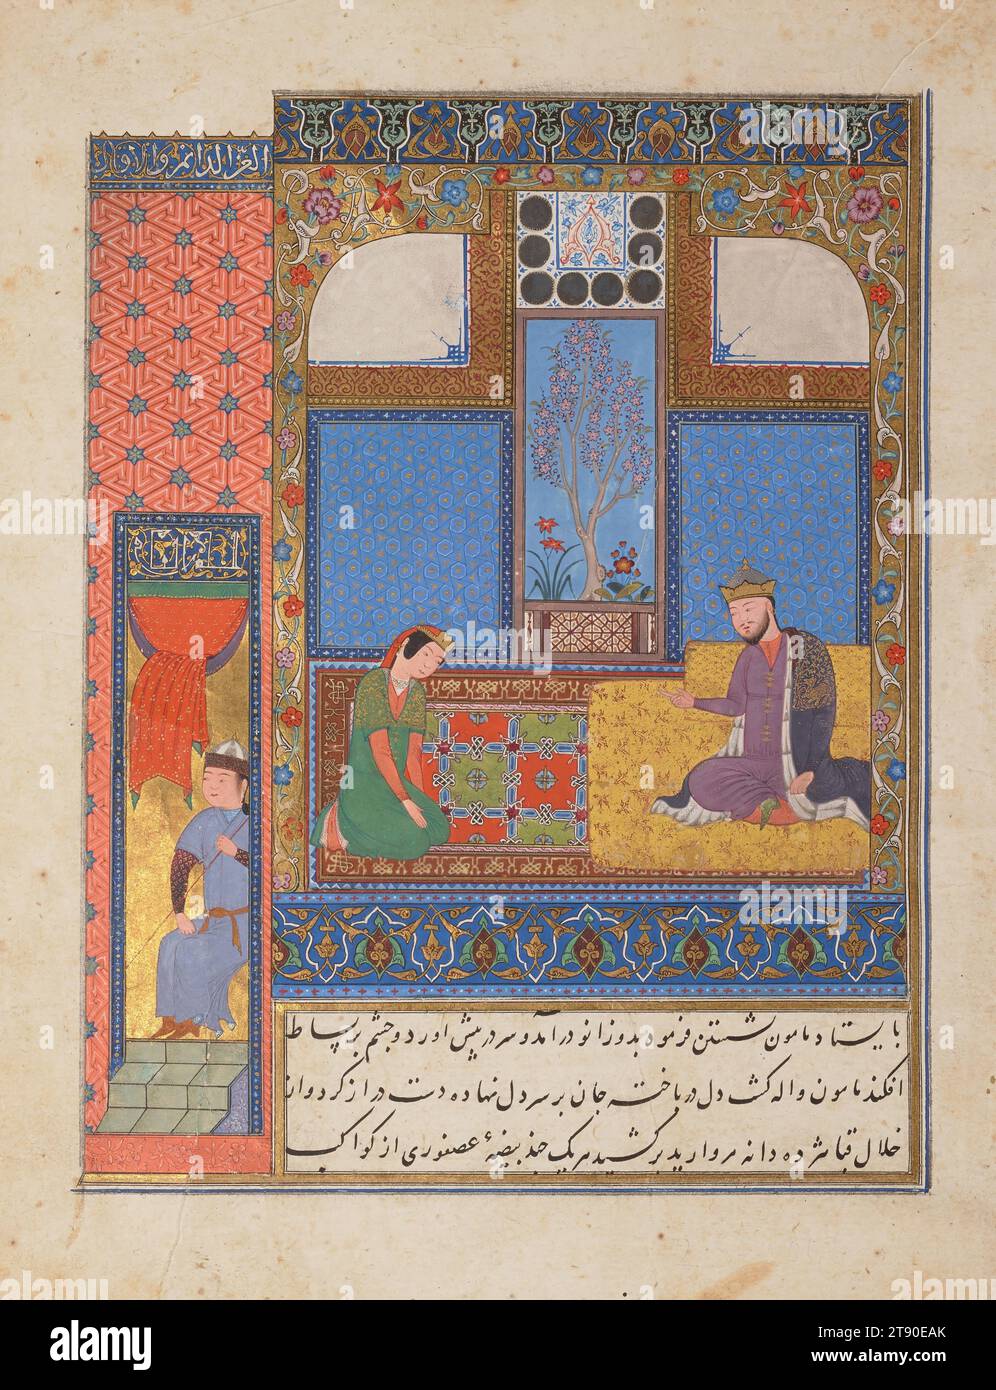 العز الدائم و
بایستاد مامون نشستن فرمود بدوزانو در آمد و سر در پیش اورد و چشم بر بساط
افکند مامون واله کشت دل در باخته جان بر سر دل نهاده دست دراز کرد و از
خلال قبا شزده دانه مروارید برکشید هریک چند بیضهٔ عصفوری از کواکب
alamy
Image ID: 2T90EAK
www.alamy.com